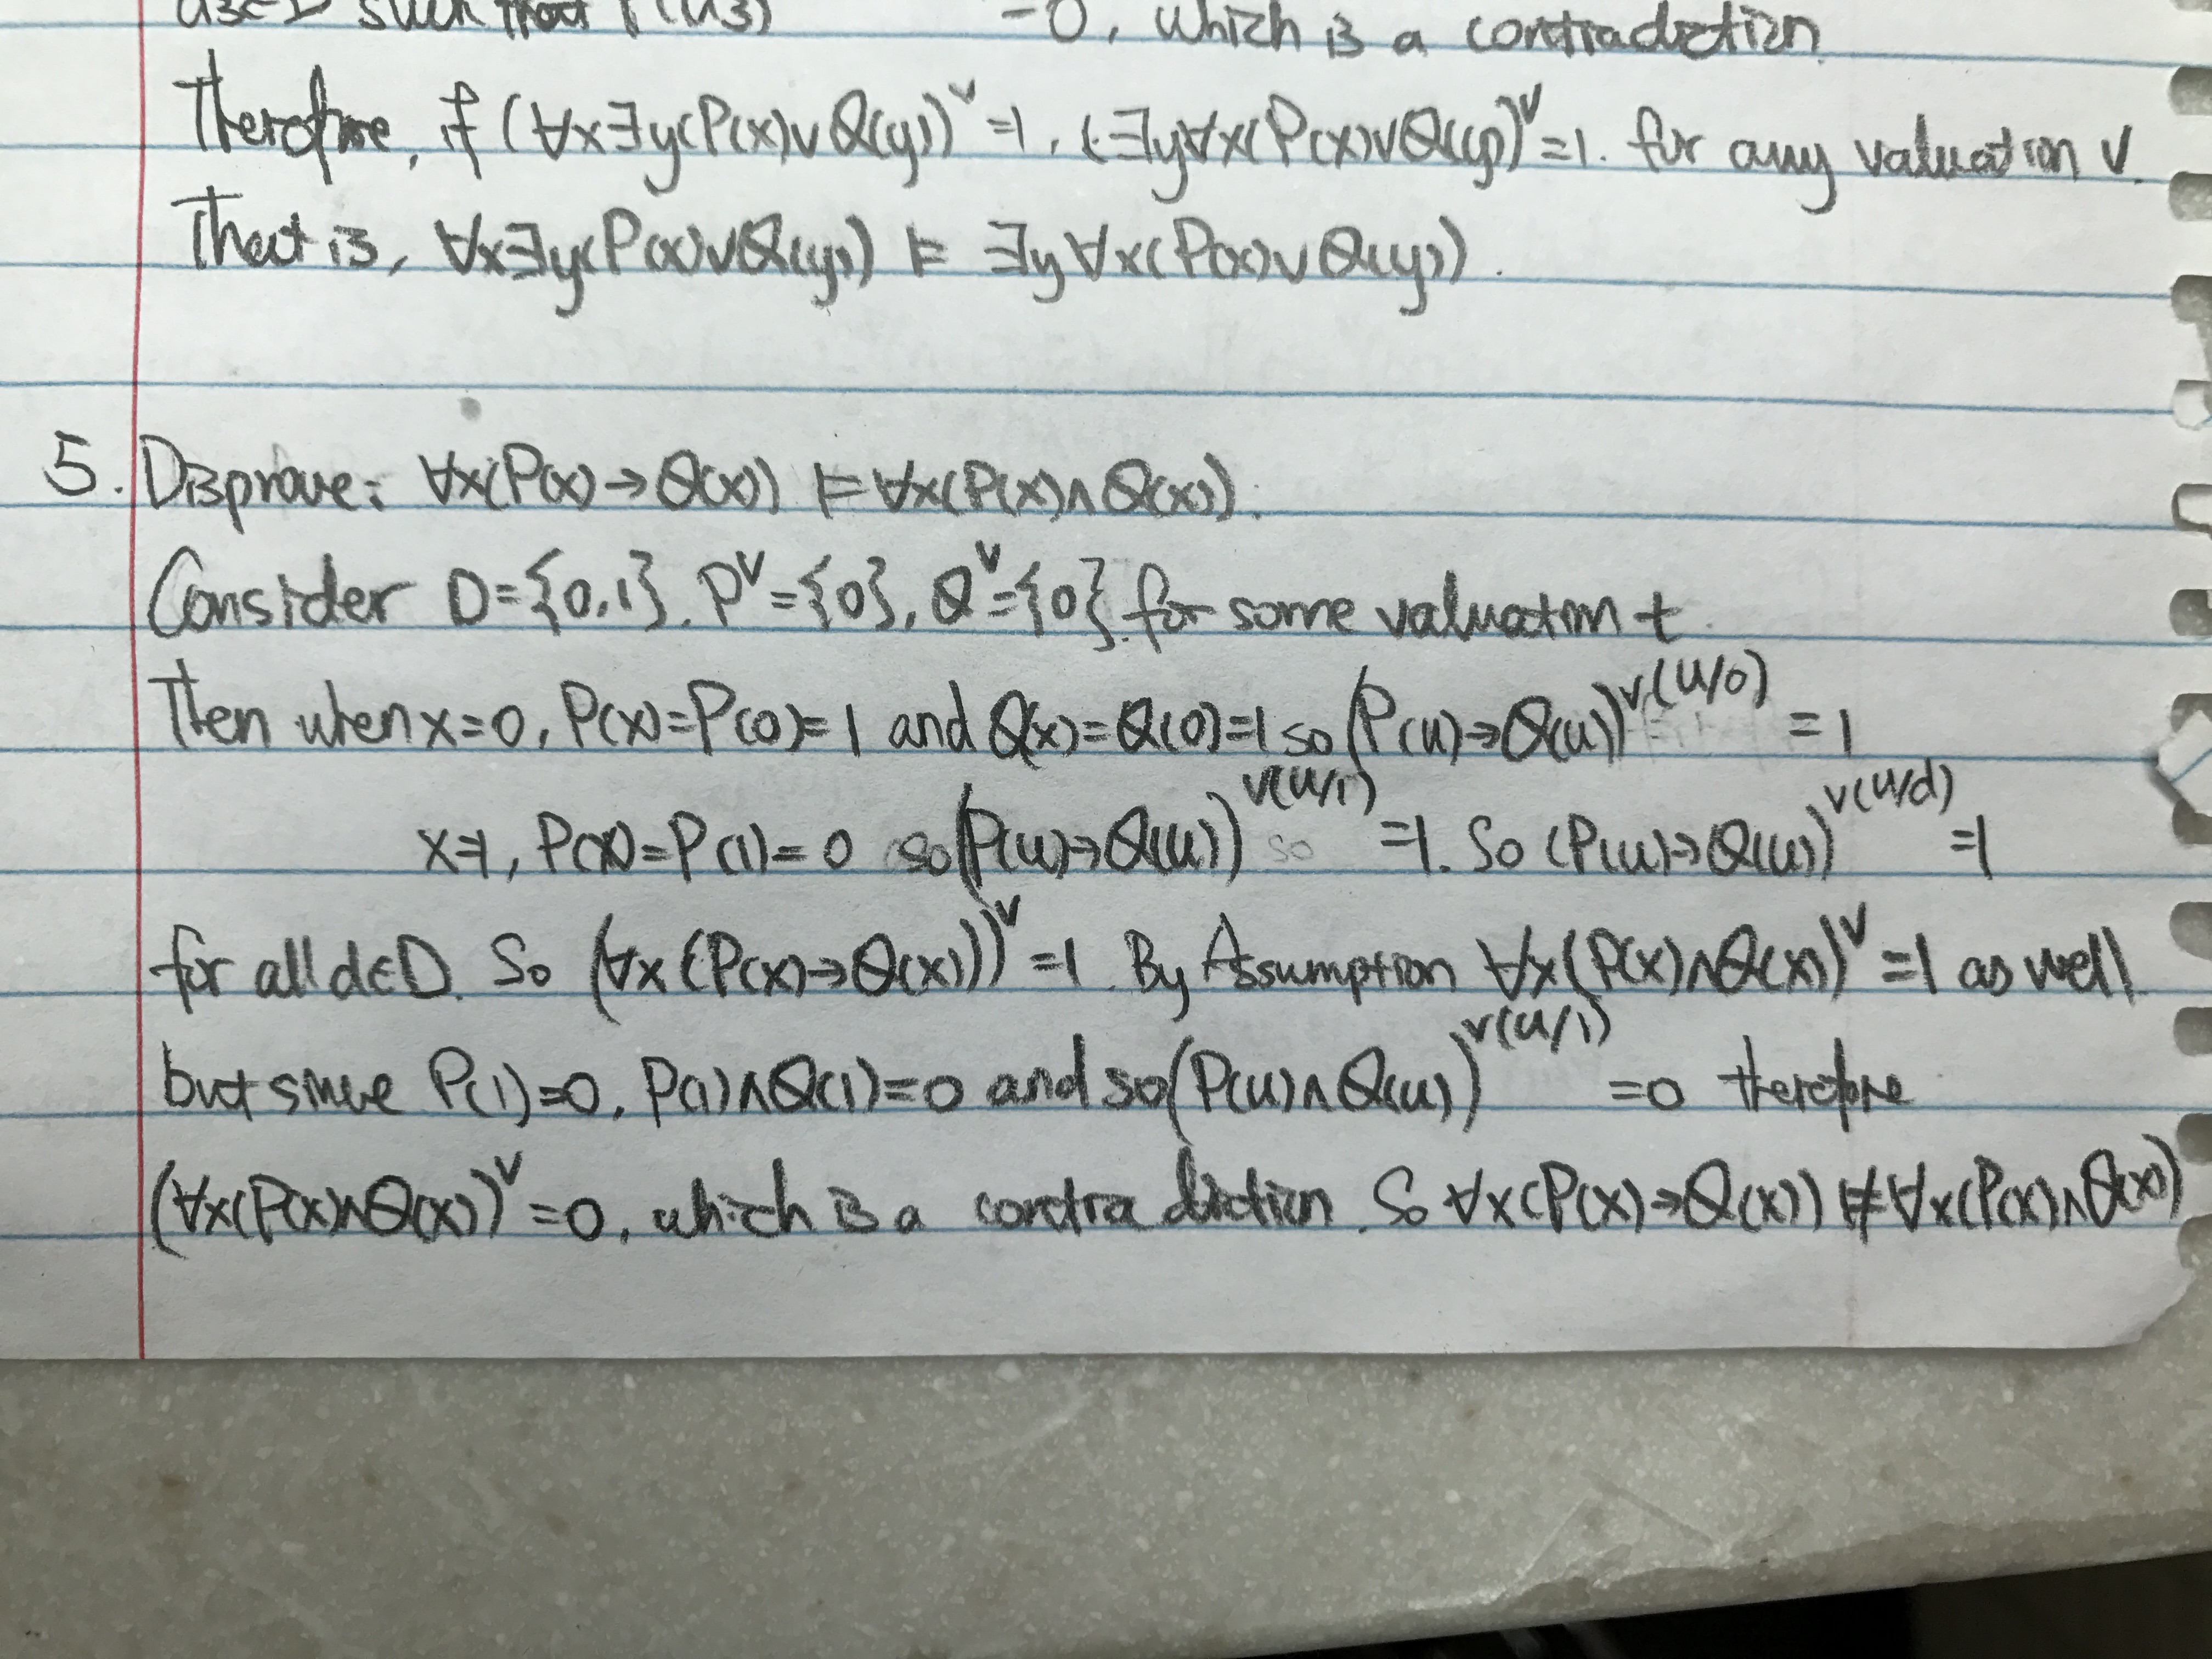 such that − 0, which is a contradiction
Therefore, if (∀x∃y(P(x)∨Q(y))^v =1, (∃y∀x(P(x)∨Q(y))^v =1. for any valuation v.
That is, ∀x∃y(P(x)∨Q(y)) ⊨ ∃y∀x(P(x)∨Q(y)).
5. Disprove: ∀x(P(x)→Q(x)) ⊨ ∀x(P(x)∧Q(x)).
Consider D={0,1}. P^v={0}, Q^v={0}. for some valuation t
Then when x=0, P(x)=P(0)=1 and Q(x)=Q(0)=1 so (P(u)→Q(u))^v(u/0) =1
x=1, P(x)=P(1)=0 so (P(u)→Q(u))^v(u/1) so =1. So (P(u)→Q(u))^v(u/d) =1
for all d∈D. So (∀x(P(x)→Q(x)))^v =1. By Assumption ∀x(P(x)∧Q(x))^v =1 as well
but since P(1)=0, P(1)∧Q(1)=0 and so (P(u)∧Q(u))^v(u/1) =0 therefore
(∀x(P(x)∧Q(x))^v =0, which is a contradiction. So ∀x(P(x)→Q(x)) ⊭ ∀x(P(x)∧Q(x))